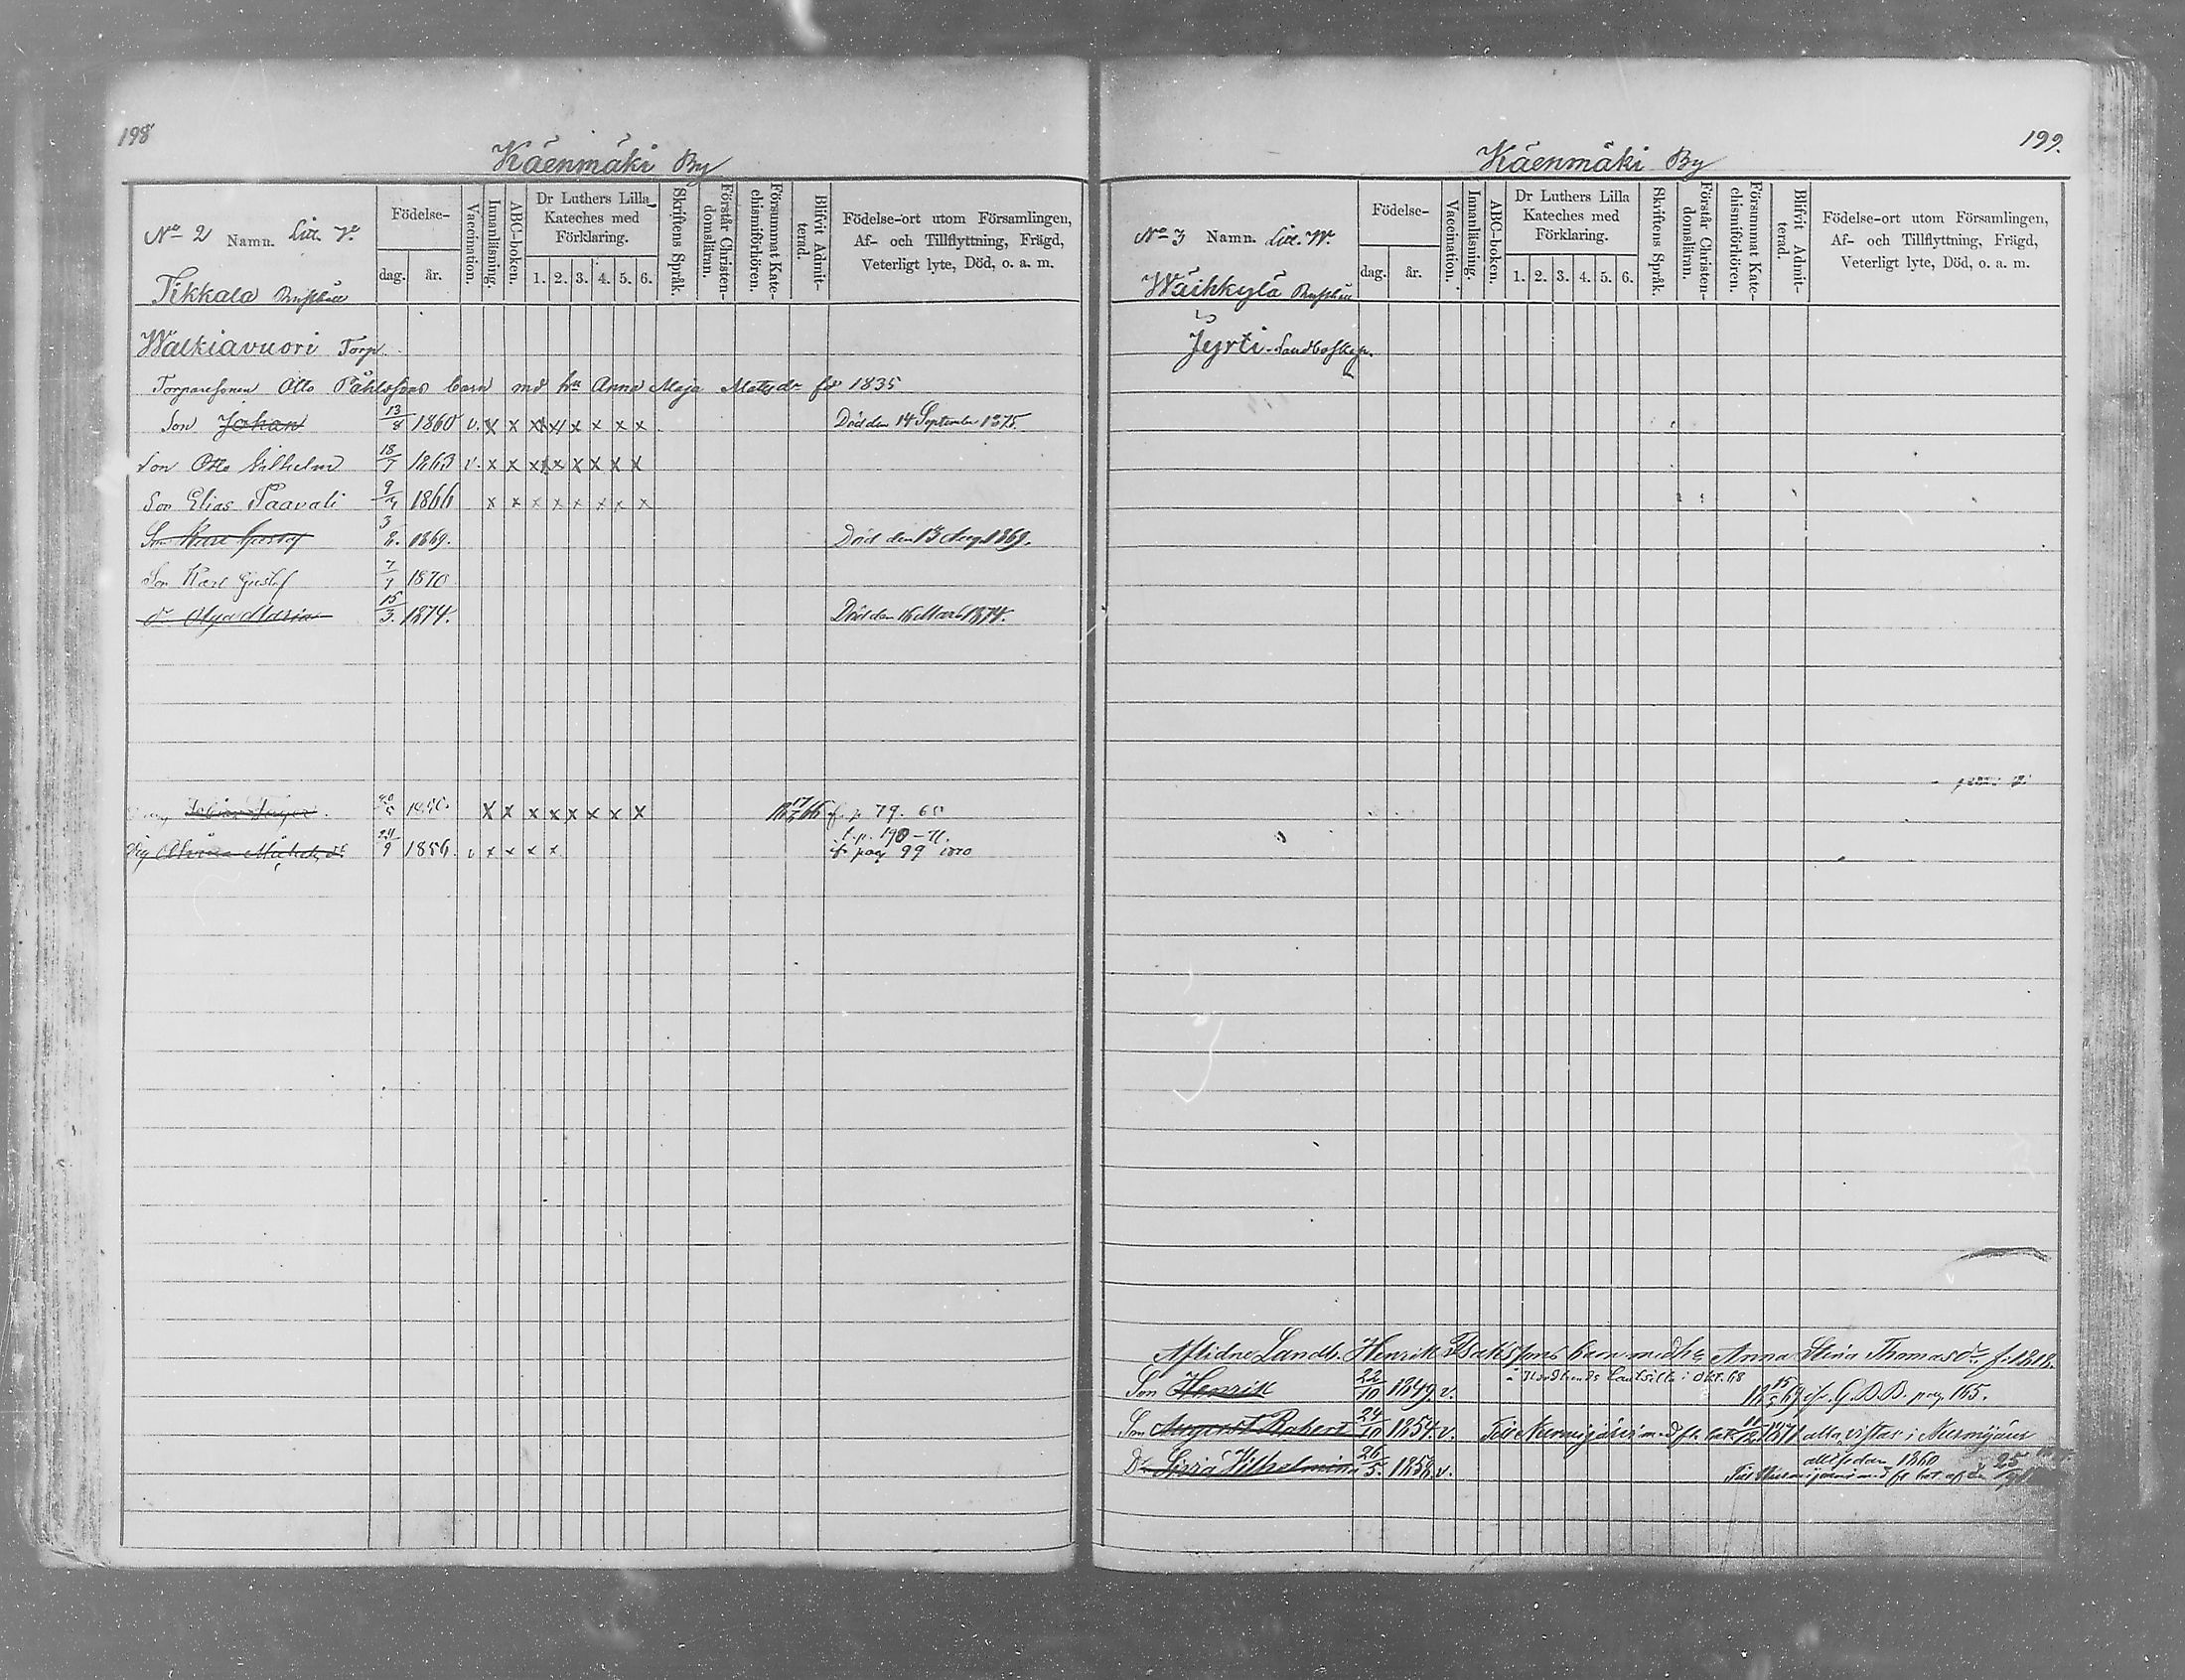 198
Käenmäki By
No 2 Namn. Litt. V.
Födelse-
dag. år.
Vaccination.
Innanläsning.
ABC-boken.
Dr Luthers Lilla
Kateches med
Förklaring.
1. 2. 3. 4. 5. 6.
Skriftens Språk.
Förstår Christen-
domsläran.
Försummat Kate-
chismiförhören.
Blifvit Admit-
terad.
Födelse-ort utom Församlingen,
Af- och Tillflyttning, Frägd,
Veterligt lyte, Död, o. a. m.
Tikkala
Walkiavuori Torp.
Torparesonen Otto Påhlssons barn md hu Anna Maja Matsdr 1835
Son Johan 13/4 1860 v. x x x x x x x x Död den 14 September 1875.
Son Otto Wilhelm 18/7 1863 v. x x x x x x x x
Son Elias Paavali 9/4 1866 x x x x x x x x
Son Karl Gustaf 3/2. 1869. Död den 13 Aug. 1869.
Son Karl Gustaf 7/7 1870
dr Olga Maria 15/3. 1874. Död den 16 Mars 1874.
x x x x x x x x p 79. 65
f. p. 190-71.
24/9 1856. v x x x x pag 99
199.
Käenmäki By
No 3 Namn. Litt. W.
Födelse-
dag. år.
Vaccination.
Innanläsning.
ABC-boken.
Dr Luthers Lilla
Kateches med
Förklaring.
1. 2. 3. 4. 5. 6.
Skriftens Språk.
Förstår Christen-
domsläran.
Försummat Kate-
chismiförhören.
Blifvit Admit-
terad.
Födelse-ort utom Församlingen,
Af- och Tillflyttning, Frägd,
Veterligt lyte, Död, o. a. m.
Wäihkylä
Jyrti
Aflidne Landb. Henrik Isakssons barn md hu Anna Stina Thomasdr f. 1818.
i Okt. 68
Son Henrik 22/10 1849. v. G. D. B. pag 165.
Son August Robert 24/10 1854. v. Till Nurmijärvi 1871 alla vistas i Nurmijärvi
allt sedan 1860
Dr Livia Wilhelmina 26/5. 1858. v. Till Nurmijärvi